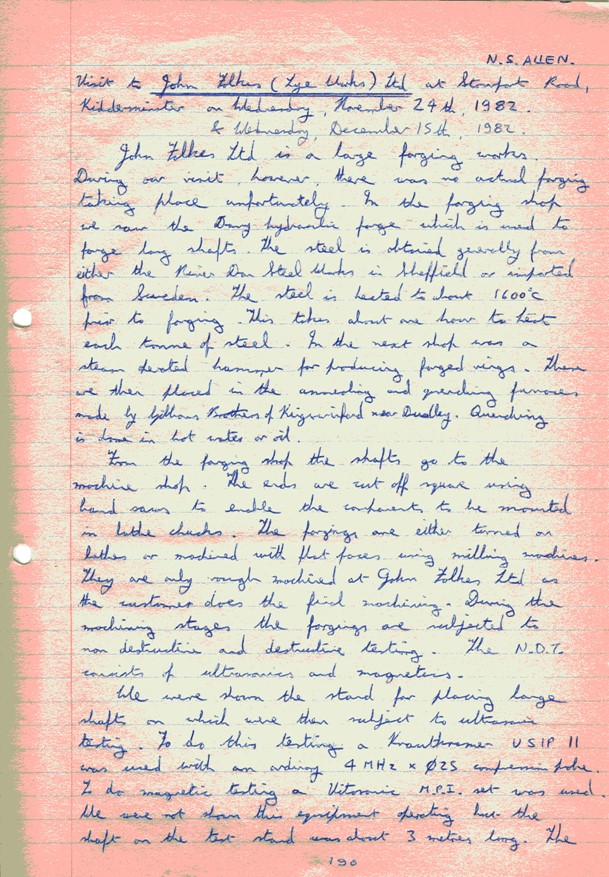 N.S. ALLEN.
Visit to John Folkes (Lye Works) Ltd at Stourport Road,
Kidderminster on Wednesday, November 24th, 1982.
& Wednesday, December 15th, 1982.
John Folkes Ltd is a large forging works.
During our visit, however, there was no actual forging
taking place unfortunately. In the forging shop
we saw the Davy hydraulic forge which is used to
forge long shafts. The steel is obtained generally from
either the River Don Steel Works in Sheffield or imported
from Sweden. The steel is heated to about 1600°C
prior to forging. This takes about one hour to heat
each tonne of steel. In the next shop was a
steam operated hammer for producing forged rings. These
are then placed in the annealing and quenching furnaces
made by Gibbons Brothers of Kingswinford near Dudley. Quenching
is done in hot water or oil.
From the forging shop the shafts go to the
machine shop. The ends are cut off square using
band saws to enable the components to be mounted
in lathe chucks. The forgings are either turned on
lathes or machined with flat faces using milling machines.
They are only rough machined at John Folkes Ltd as
the customer does the final machining. During the
machining stages the forgings are subjected to
non destructive and destructive testing. The N.D.T.
consists of ultrasonics and magnetics.
We were shown the stand for placing large
shafts on which were then subject to ultrasonic
testing. To do this testing a Krautkramer USIP 11
was used with an ordinary 4 MHz x Ø25 compression probe.
To do magnetic testing a Vitosonic M.P.I. set was used.
We were not shown this equipment operating but the
shaft on the test stand was about 3 metres long. The
190